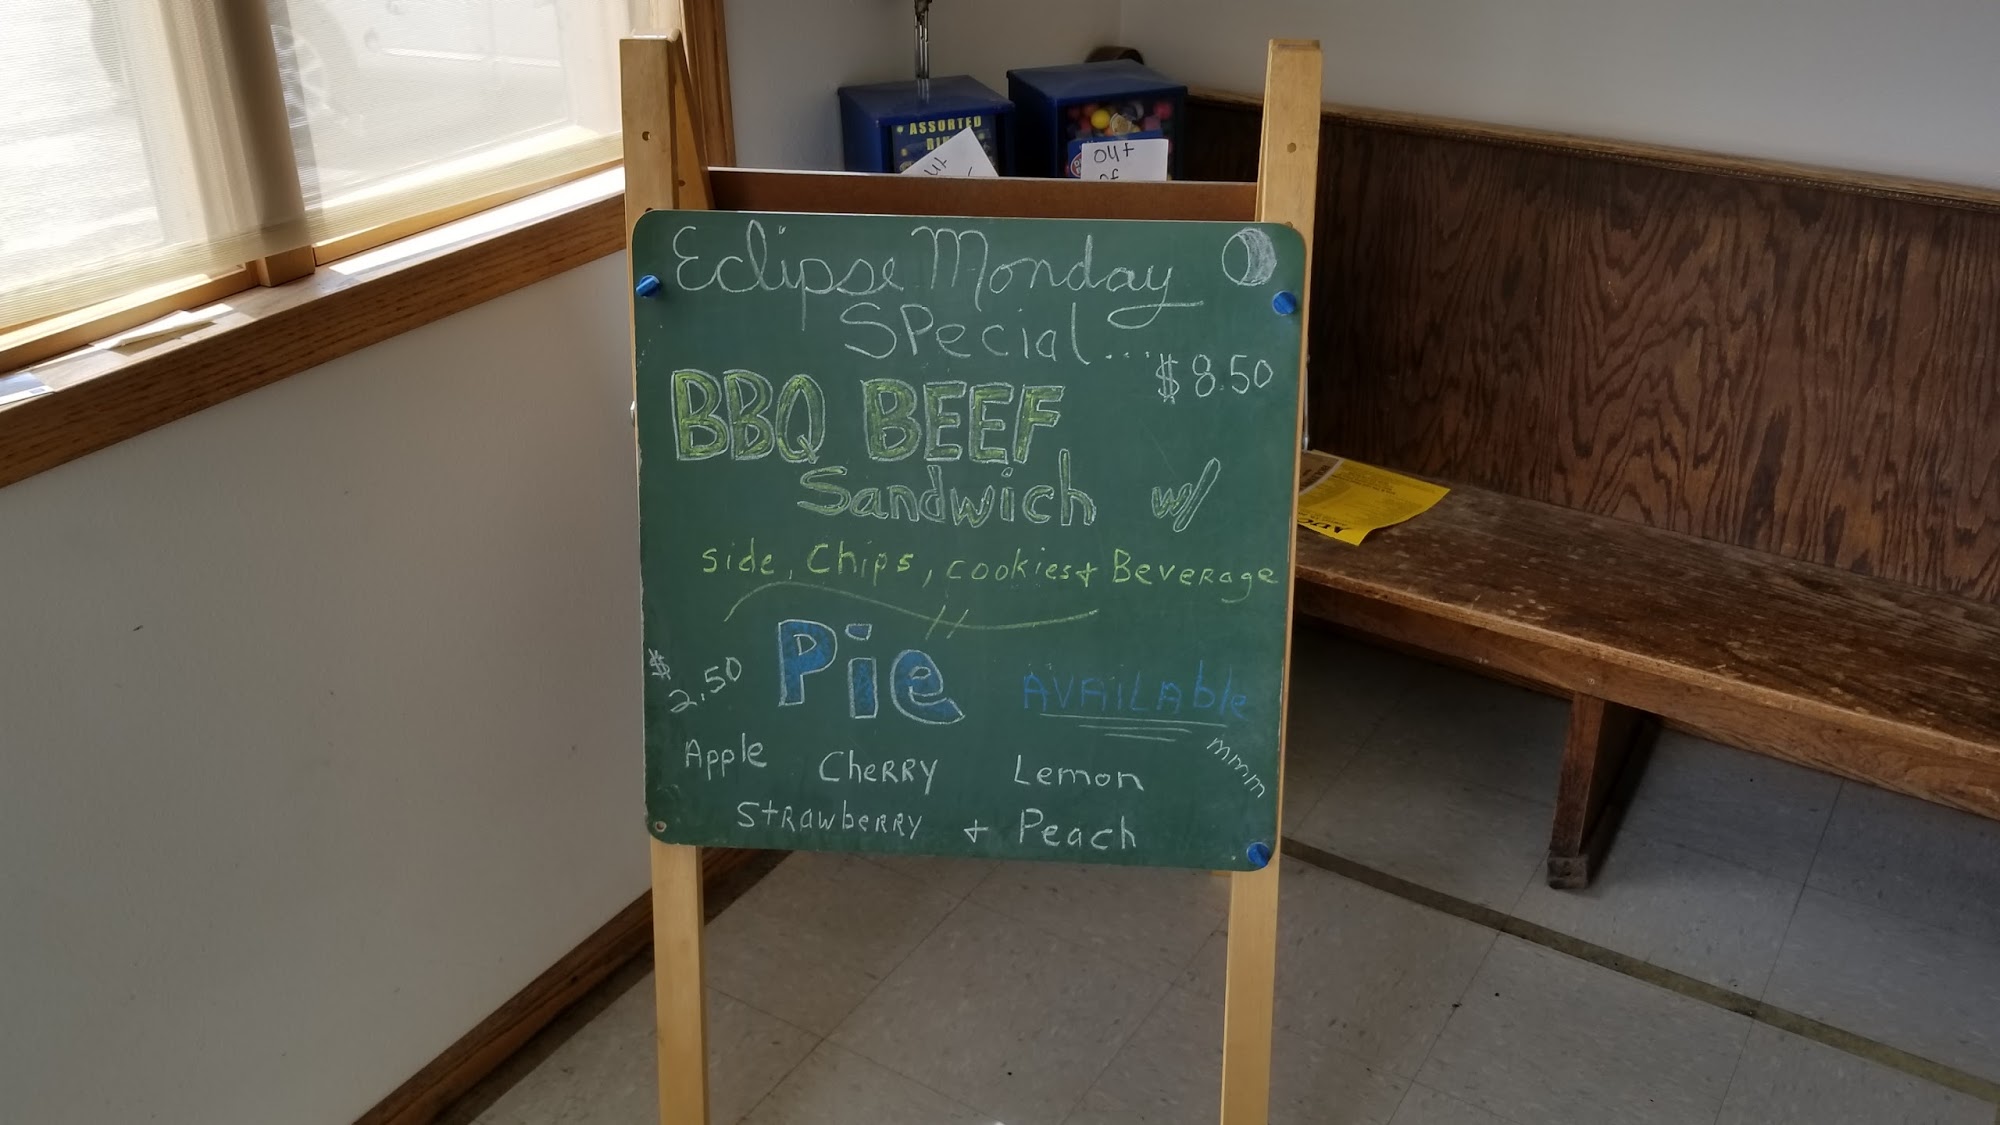 ASSORTED
out
of
Eclipse Monday
Special....
$8.50
BBQ BEEF
Sandwich w/
side, Chips, cookies + Beverage
$2.50
Pie
AVAiLAble
mmm
Apple Cherry Lemon
Strawberry + Peach